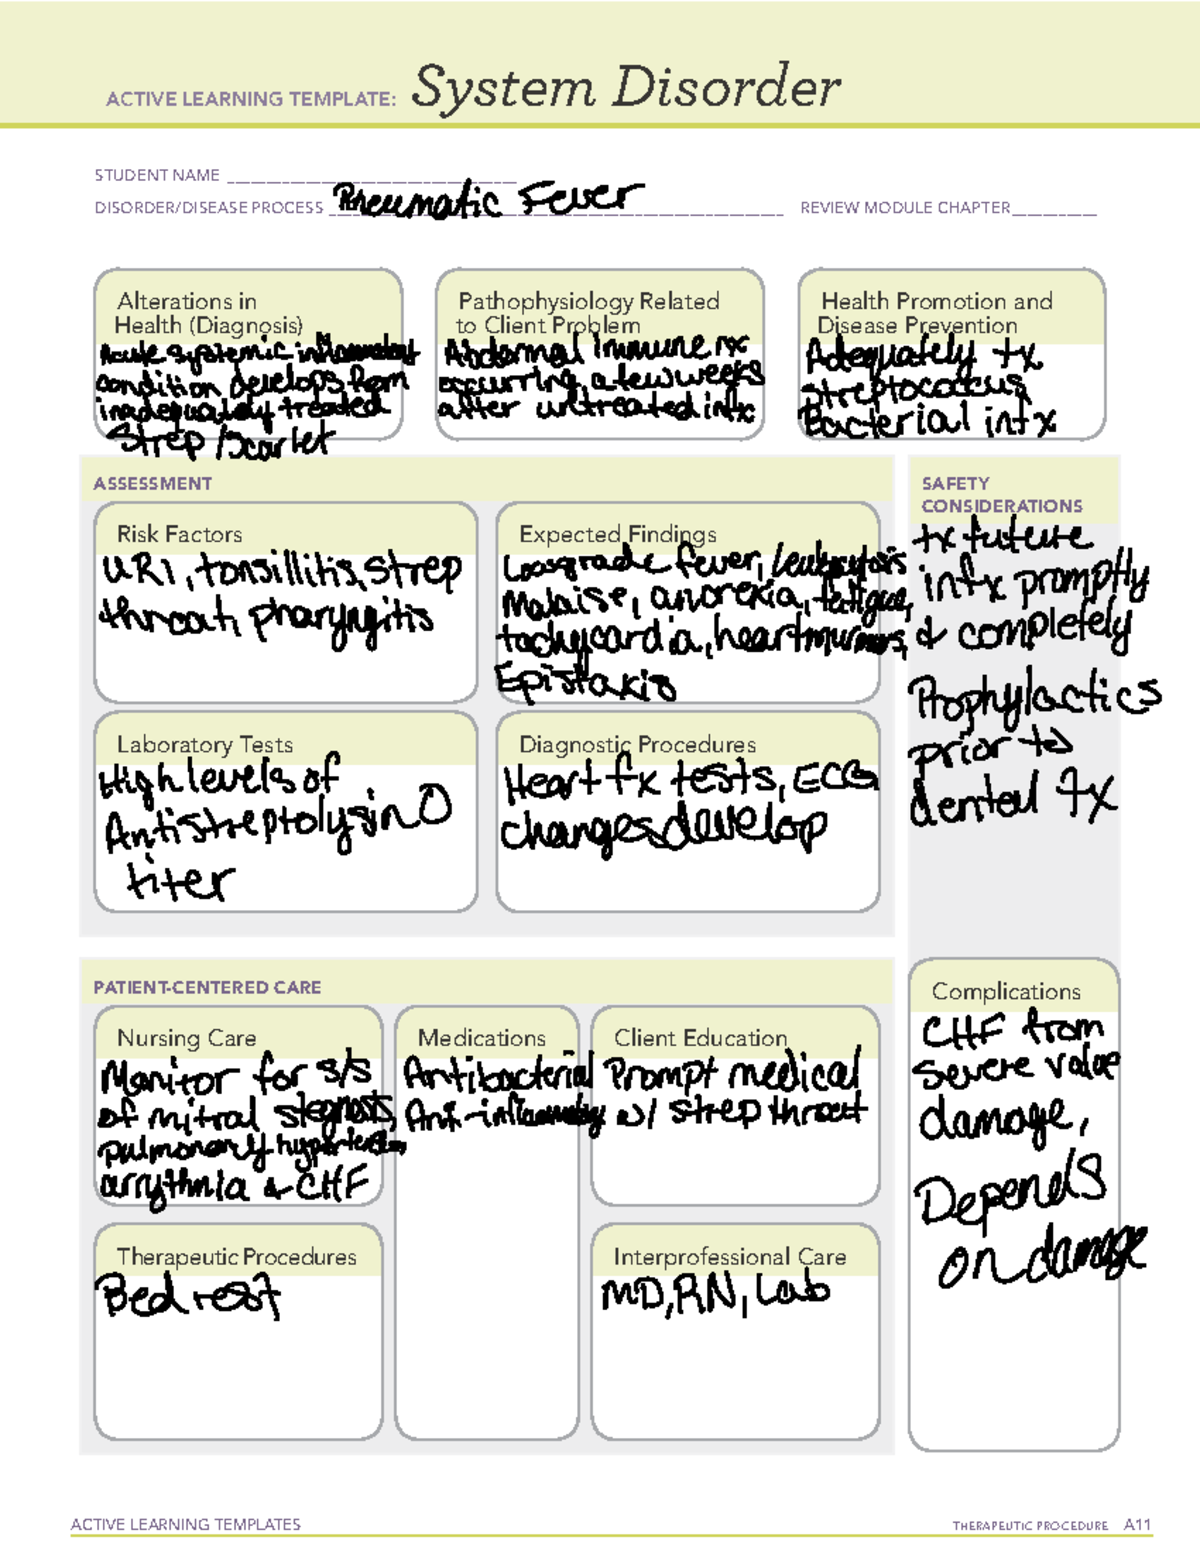 ACTIVE LEARNING TEMPLATE: System Disorder
STUDENT NAME
DISORDER/DISEASE PROCESS Rheumatic Fever REVIEW MODULE CHAPTER
Alterations in
Health (Diagnosis)
Acute systemic inflammatory
condition, develops from
inadequately treated
Strep/Scarlet
Pathophysiology Related
to Client Problem
Abdormal immune rx
occurring, a few weeks
after untreated infx
Health Promotion and
Disease Prevention
Adequately tx
streptococcus
Bacterial infx
ASSESSMENT
Risk Factors
URI, tonsillitis, strep
throat, pharyngitis
Expected Findings
Lowgrade fever, leukocytosis
Malaise, anorexia, fatigue,
tachycardia, heart murmurs,
Epistaxis
Laboratory Tests
High levels of
Antistreptolysin O
titer
Diagnostic Procedures
Heart fx tests, ECG
changes develop
SAFETY
CONSIDERATIONS
tx future
infx promptly
& completely
Prophylactics
prior to
dental tx
PATIENT-CENTERED CARE
Nursing Care
Monitor for s/s
of mitral stegnosis,
pulmonary hypertension,
arrythmia & CHF
Medications
Antibacterial
Anti-inflammatory
Client Education
Prompt medical
w/ strep throat
Therapeutic Procedures
Bed rest
Interprofessional Care
MD, RN, Lab
Complications
CHF from
severe valve
damage,
Depends
on damage
ACTIVE LEARNING TEMPLATES
THERAPEUTIC PROCEDURE A11